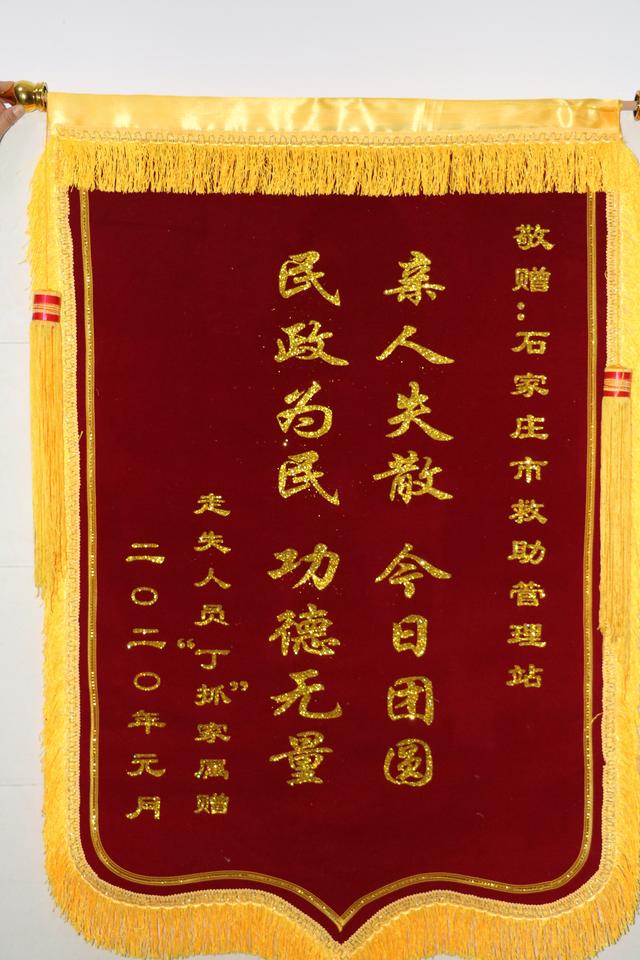 敬赠：石家庄市救助管理站
亲人失散 今日团圆
民政为民 功德无量
走失人员“丁抓”家属赠
二〇二〇年元月